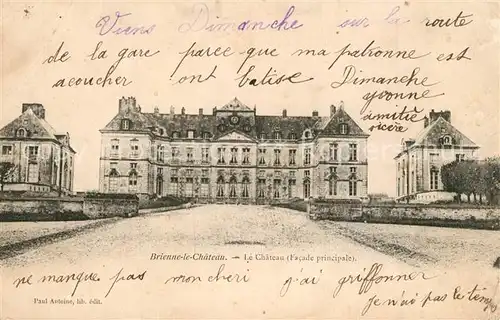 Viens Dimanche sur la route
de la gare parce que ma patronne est
acoucher ont batise Dimanche
yvonne
amitié
Brienne-le-Château. — Le Château (Façade principale).
ne manque pas mon cheri j'ai griffonner
je n'ai pas le temps
Paul Antoine, lib. édit.